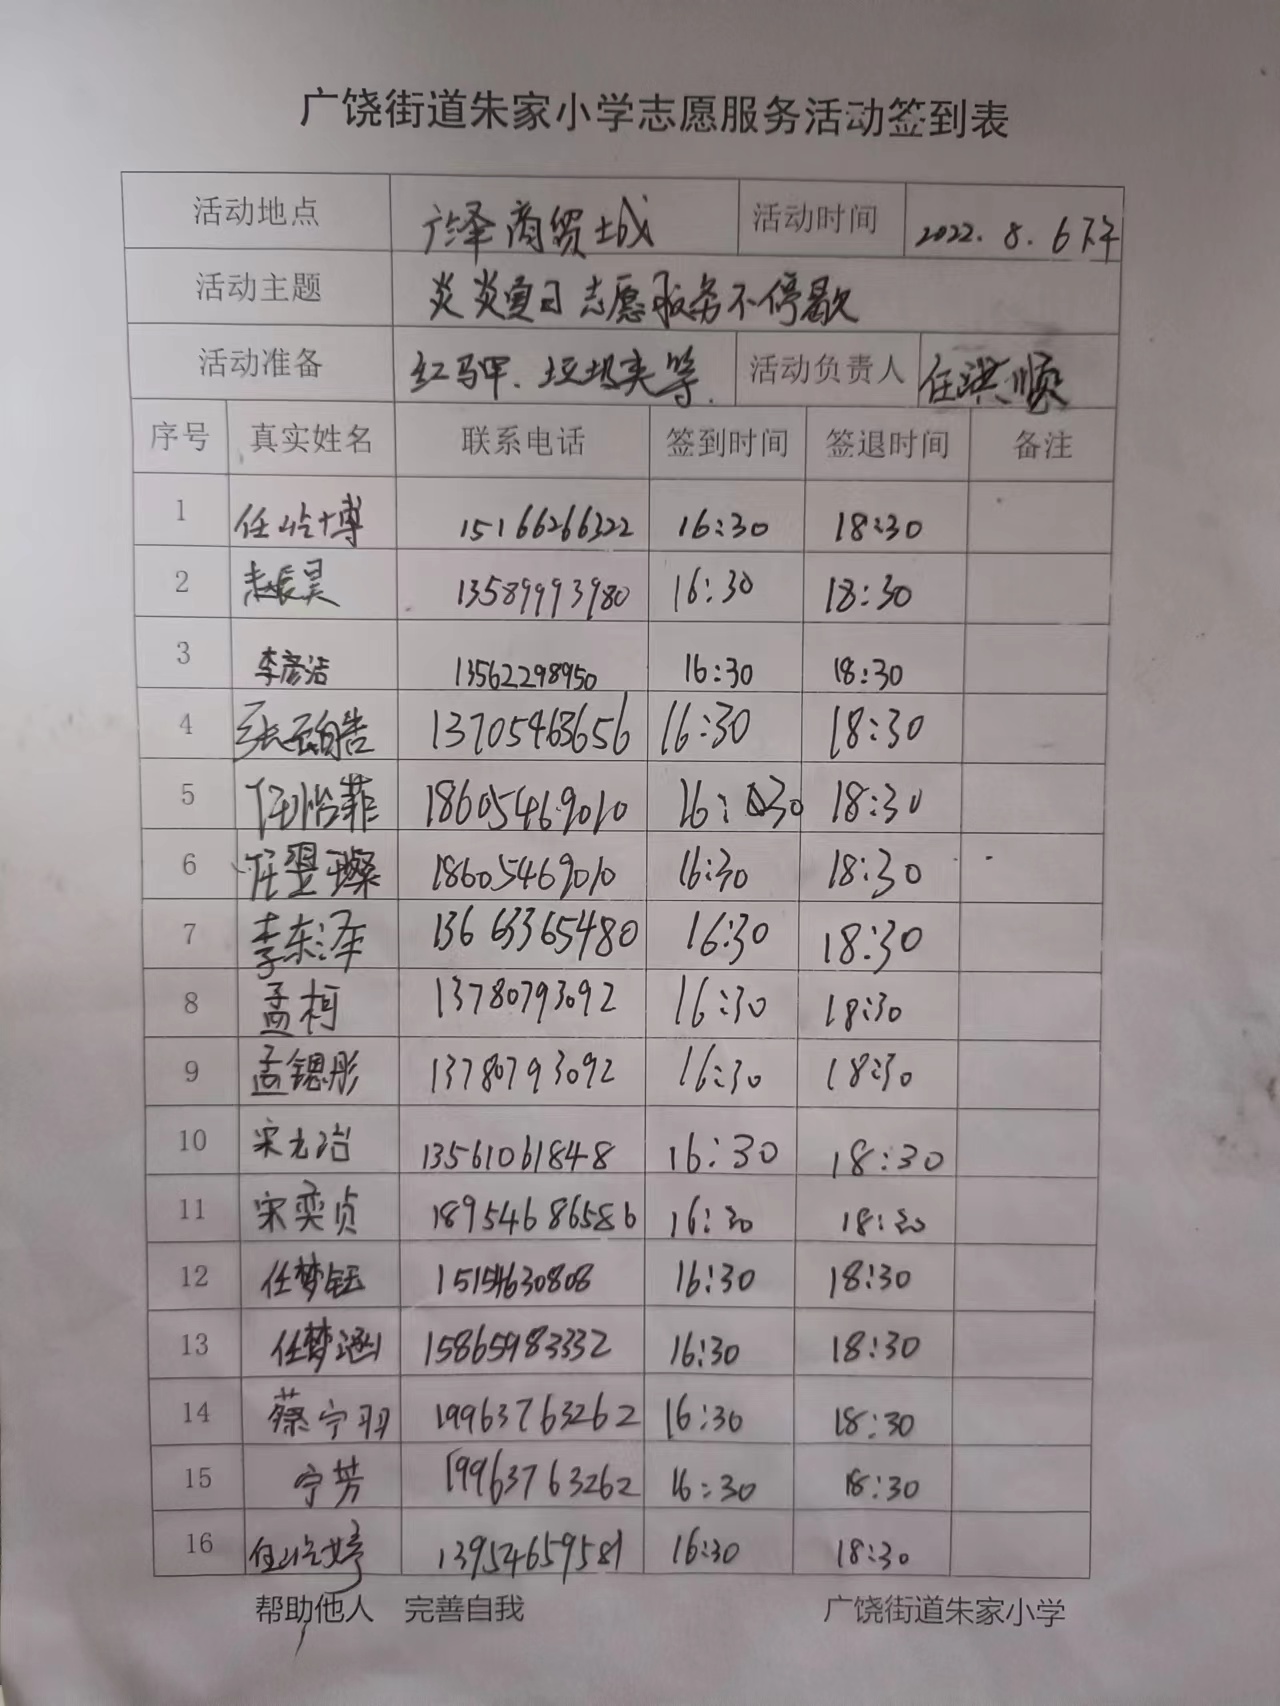 广饶街道朱家小学志愿服务活动签到表
活动地点 广泽商贸城 活动时间 2022.8.6下午
活动主题 炎炎夏日志愿服务不停歇
活动准备 红马甲、垃圾夹等. 活动负责人 任洪顺
序号 真实姓名 联系电话 签到时间 签退时间 备注
1 任屹博 15166266322 16:30 18:30
2 赵辰昊 13589993980 16:30 18:30
3 李彦洁 13562298950 16:30 18:30
4 13705463656 16:30 18:30
5 任怡菲 18605469010 16:30 18:30
6 任翌璨 18605469010 16:30 18:30
7 李东泽 13663365480 16:30 18:30
8 孟柯 13780793092 16:30 18:30
9 孟锶彤 13780793092 16:30 18:30
10 宋 13561061848 16:30 18:30
11 宋奕贞 18954686586 16:30 18:30
12 任梦钰 15154630808 16:30 18:30
13 任梦涵 15865983332 16:30 18:30
14 蔡宁羽 19963763262 16:30 18:30
15 宁芳 19963763262 16:30 18:30
16 任屹婷 13954659581 16:30 18:30
帮助他人 完善自我 广饶街道朱家小学